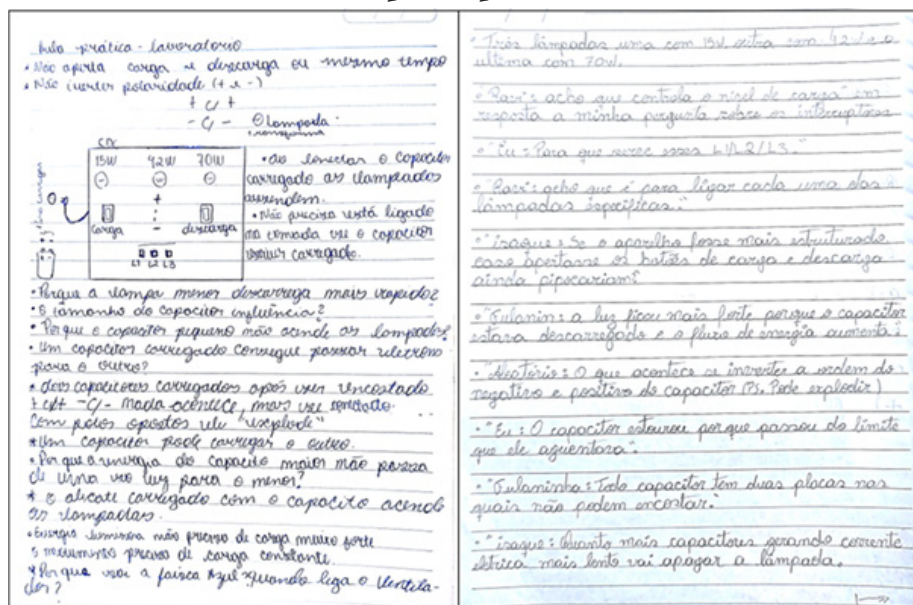 Aula prática - laboratório
• Não aperta carga e descarga ou mesmo tempo
• Não inverter polaridade (+ e -)
+ C/ +
- C/ -
lampada
15W 42W 70W
+
-
carga
descarga
L1 L2 L3
• ao conectar o capacitor
carregado as lampadas
acendem.
• Não precisa está ligado
na tomada se o capacitor
estiver carregado.
• Porque a lampa menor descarrega mais rapido?
• O tamanho do capacitor influência?
• Porque o capacitor pequeno não acende as lampadas?
• Um capacitor carregado consegue passar eletrons
para o outro?
• dois capacitores carregados após ser encostado
nada acontece, mas se
com polos opostos ele "explode"
* Um capacitor pode carregar o outro.
• Por que a energia do capacito maior não passa
de uma vez para o menor?
* o alicate carregado com o capacito acende
as lampadas.
• Energia luminosa não precisa de carga muito forte
o movimento precisa de carga constante.
* Por que sai a faisca azul quando liga o ventila-
dor?
• Três lâmpadas uma com 15W, outra com 42W e a
ultima com 70W.
• "Ravi: acho que controla o nível de carga" em
resposta a minha pergunta sobre os interruptores
• "Eu: Para que serve esses L1/L2/L3."
• "Ravi: acho que é para ligar cada uma das
lâmpadas específicas."
• "isaque: Se o aparelho fosse mais estruturado,
caso apertasse os botões de carga e descarga
ainda pipocariam?
• "Fulanin: a luz ficou mais forte porque o capacitor
estava descarregado e o fluxo de energia aumenta".
• "Aleatório: O que acontece se inverter a ordem do
negativo e positivo do capacitor (PS. Pode explodir)
• "Eu: O capacitor estourou porque passou do limite
que ele aguentava".
• "Fulaninha: Todo capacitor tem duas placas nas
quais não podem encostar".
• "isaque: Quanto mais capacitores gerando corrente
elétrica mais lento vai apagar a lâmpada.